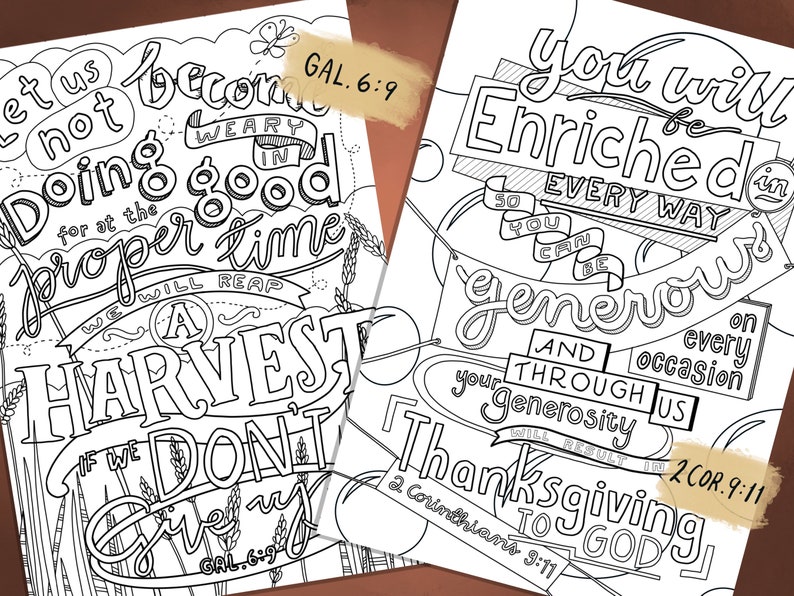 Let us
not become
WEARY
IN
Doing good
for at the
proper time
WE WILL REAP
A
HARVEST
IF WE DON'T
Give up
GAL. 6:9
GAL. 6:9
you will
be
Enriched
in
EVERY WAY
SO
YOU
CAN
BE
generous
on
every
occasion
AND
THROUGH US
your
generosity
WILL RESULT IN
Thanksgiving
TO GOD
2 Corinthians 9:11
2 COR. 9:11